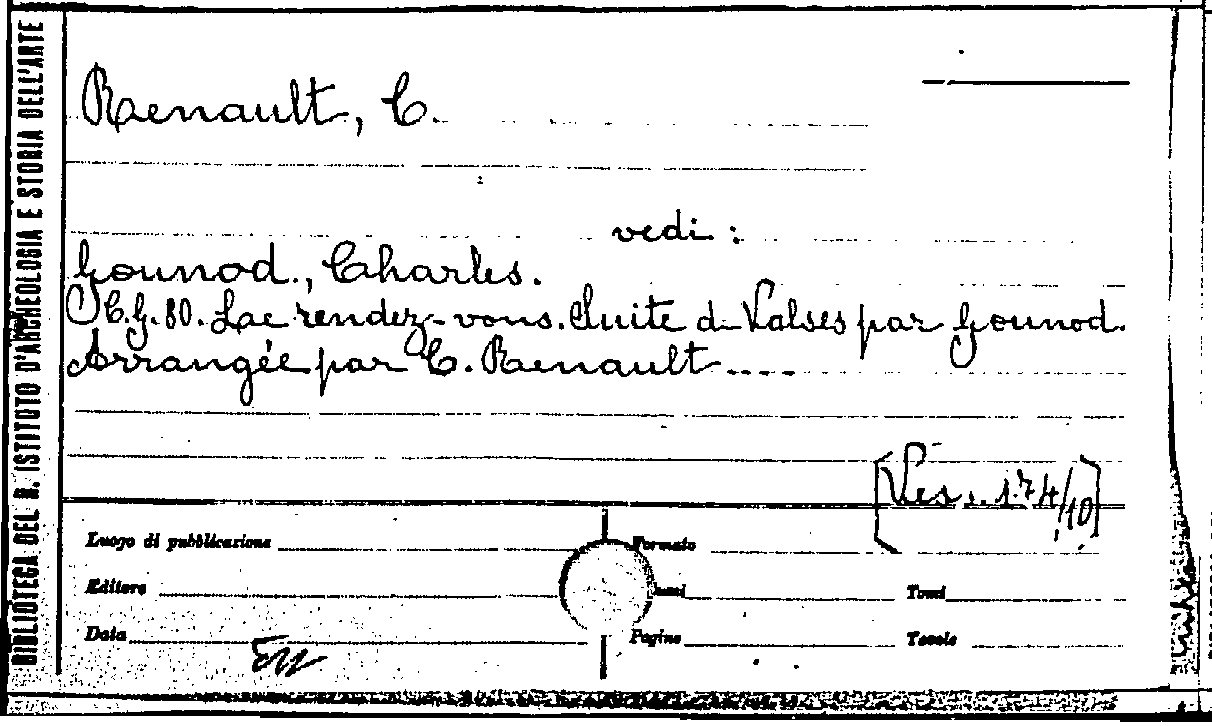 BIBLIOTECA DEL R. ISTITUTO D'ARCHEOLOGIA E STORIA DELL'ARTE
Renault, C.
vedi :
Gounod, Charles.
C.G. 80. Le rendez-vous. Suite de Valses par Gounod.
Arrangée par C. Renault....
[Ves. 174/10]
Luogo di pubblicazione
Formato
Editore
Tomi
Data
Pagine
Tavole